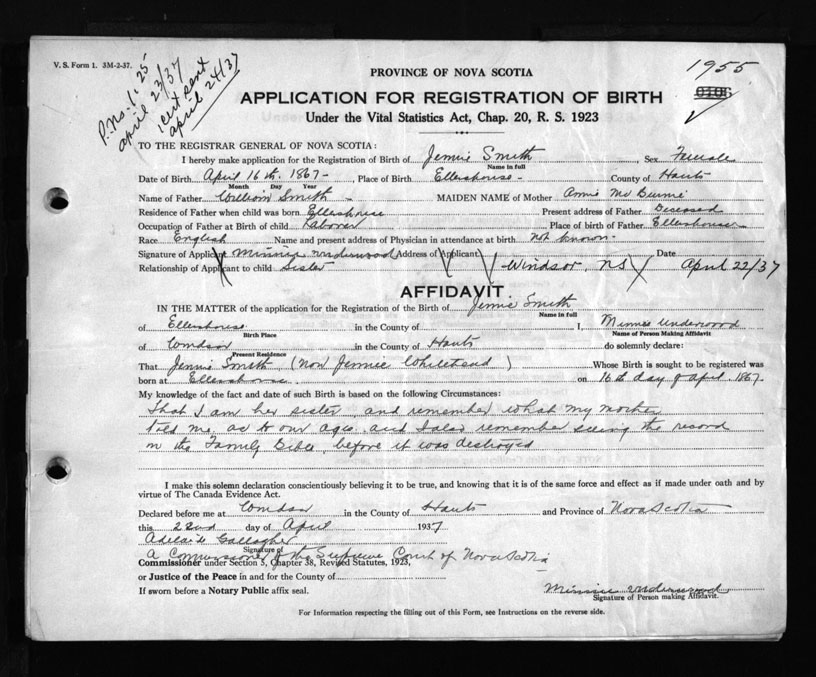 V. S. Form 1. 3M-2-37.
P. No. 1.25
april 23/37
1 cert sent
april 24/37
1955
PROVINCE OF NOVA SCOTIA
APPLICATION FOR REGISTRATION OF BIRTH
Under the Vital Statistics Act, Chap. 20, R. S. 1923
TO THE REGISTRAR GENERAL OF NOVA SCOTIA:
I hereby make application for the Registration of Birth of Jennie Smith, Sex Female
Name in full
Date of Birth April 16th, 1867- , Place of Birth Ellershouse - County of Hants
Month Day Year
Name of Father William Smith - MAIDEN NAME of Mother Annie Mc
Residence of Father when child was born Ellershouse Present address of Father Deceased
Occupation of Father at Birth of child Laborer Place of birth of Father Ellershouse -
Race English Name and present address of Physician in attendance at birth not known -
Signature of Applicant Minnie Underwood Address of Applicant Windsor, NS Date April 22/37
Relationship of Applicant to child Sister
AFFIDAVIT
IN THE MATTER of the application for the Registration of the Birth of Jennie Smith
Name in full
of Ellershouse in the County of I, Minnie Underwood
Birth Place Name of Person Making Affidavit
of Windsor in the County of Hants do solemnly declare:
Present Residence
That Jennie Smith (Now Jennie Whitehead) Whose Birth is sought to be registered was
born at Ellershouse. on 16th day of April, 1867.
My knowledge of the fact and date of such Birth is based on the following Circumstances:
That I am her sister, and remember what my mother
told me as to our ages and I also remember seeing the record
in the Family Bible, before it was destroyed
I make this solemn declaration conscientiously believing it to be true, and knowing that it is of the same force and effect as if made under oath and by
virtue of The Canada Evidence Act.
Declared before me at Windsor in the County of Hants and Province of Nova Scotia
this 22nd day of April 1937
Adelaide Gallagher
Signature of
A Commissioner of the Supreme Court of Nova Scotia
Commissioner under Section 5, Chapter 38, Revised Statutes, 1923,
or Justice of the Peace in and for the County of
If sworn before a Notary Public affix seal.
Minnie Underwood
Signature of Person making Affidavit.
For Information respecting the filling out of this Form, see Instructions on the reverse side.